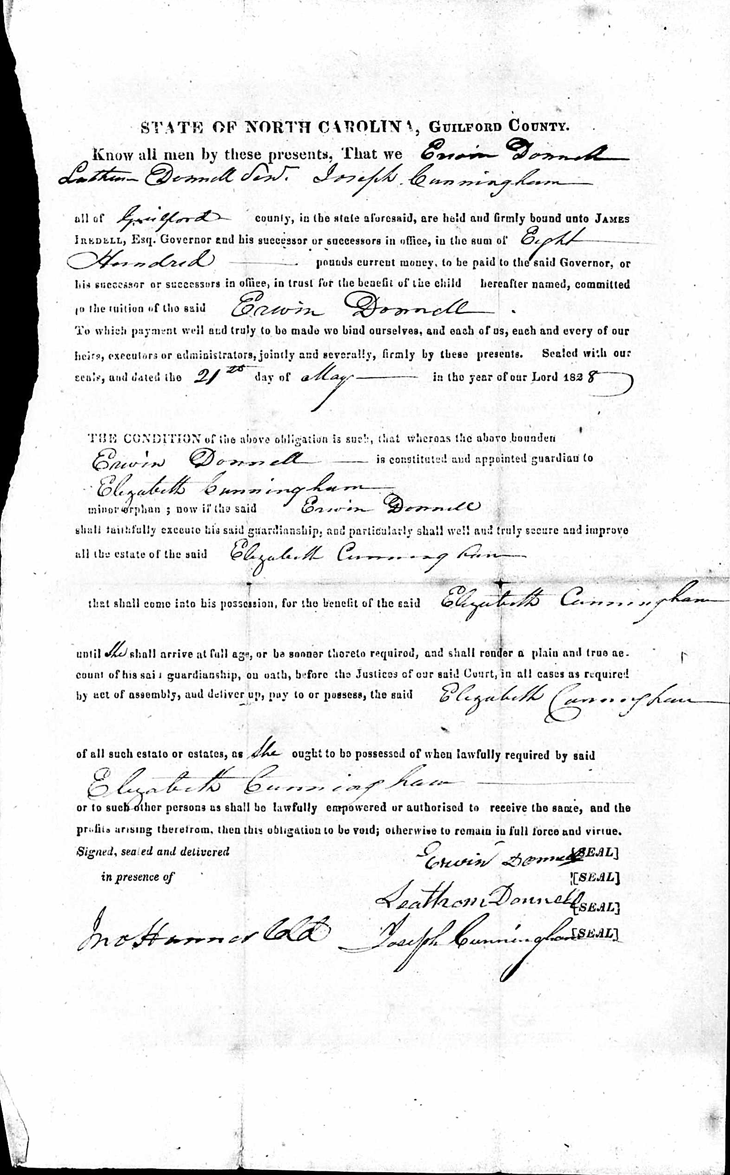 STATE OF NORTH CAROLINA, GUILFORD COUNTY.
Know all men by these presents, That we Erwin Donnell
Donnell Joseph Cunningham
all of Guilford county, in the state aforesaid, are held and firmly bound unto JAMES
IREDELL, Esq. Governor and his successor or successors in office, in the sum of Eight
Hundred pounds current money, to be paid to the said Governor, or
his successor or successors in office, in trust for the benefit of the child hereafter named, committed
to the tuition of the said Erwin Donnell.
To which payment well and truly to be made we bind ourselves, and each of us, each and every of our
heirs, executors or administrators, jointly and severally, firmly by these presents. Sealed with our
seals, and dated the 21st day of May in the year of our Lord 1828
THE CONDITION of the above obligation is such, that whereas the above bounden
Erwin Donnell is constituted and appointed guardian to
Elizabeth Cunningham
minor orphan; now if the said Erwin Donnell
shall faithfully execute his said guardianship, and particularly shall well and truly secure and improve
all the estate of the said Elizabeth Cunningham
that shall come into his possession, for the benefit of the said Elizabeth Cunningham
until she shall arrive at full age, or be sooner thereto required, and shall render a plain and true ac-
count of his said guardianship, on oath, before the Justices of our said Court, in all cases as required
by act of assembly, and deliver up, pay to or possess, the said Elizabeth Cunningham
of all such estate or estates, as she ought to be possessed of when lawfully required by said
Elizabeth Cunningham
or to such other persons as shall be lawfully empowered or authorised to receive the same, and the
profits arising therefrom, then this obligation to be void; otherwise to remain in full force and virtue.
Signed, sealed and delivered
in presence of
Erwin Donnell [SEAL]
[SEAL]
Leathom Donnell [SEAL]
Jno Hanner Joseph Cunningham [SEAL]